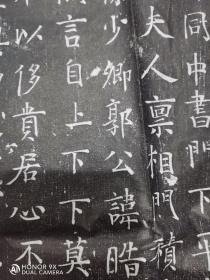 同中書門下平
夫人禀相門積
少卿郭公諱晧
言自上下下莫
以侈貴居心不
HONOR 9X
AI CAMERA